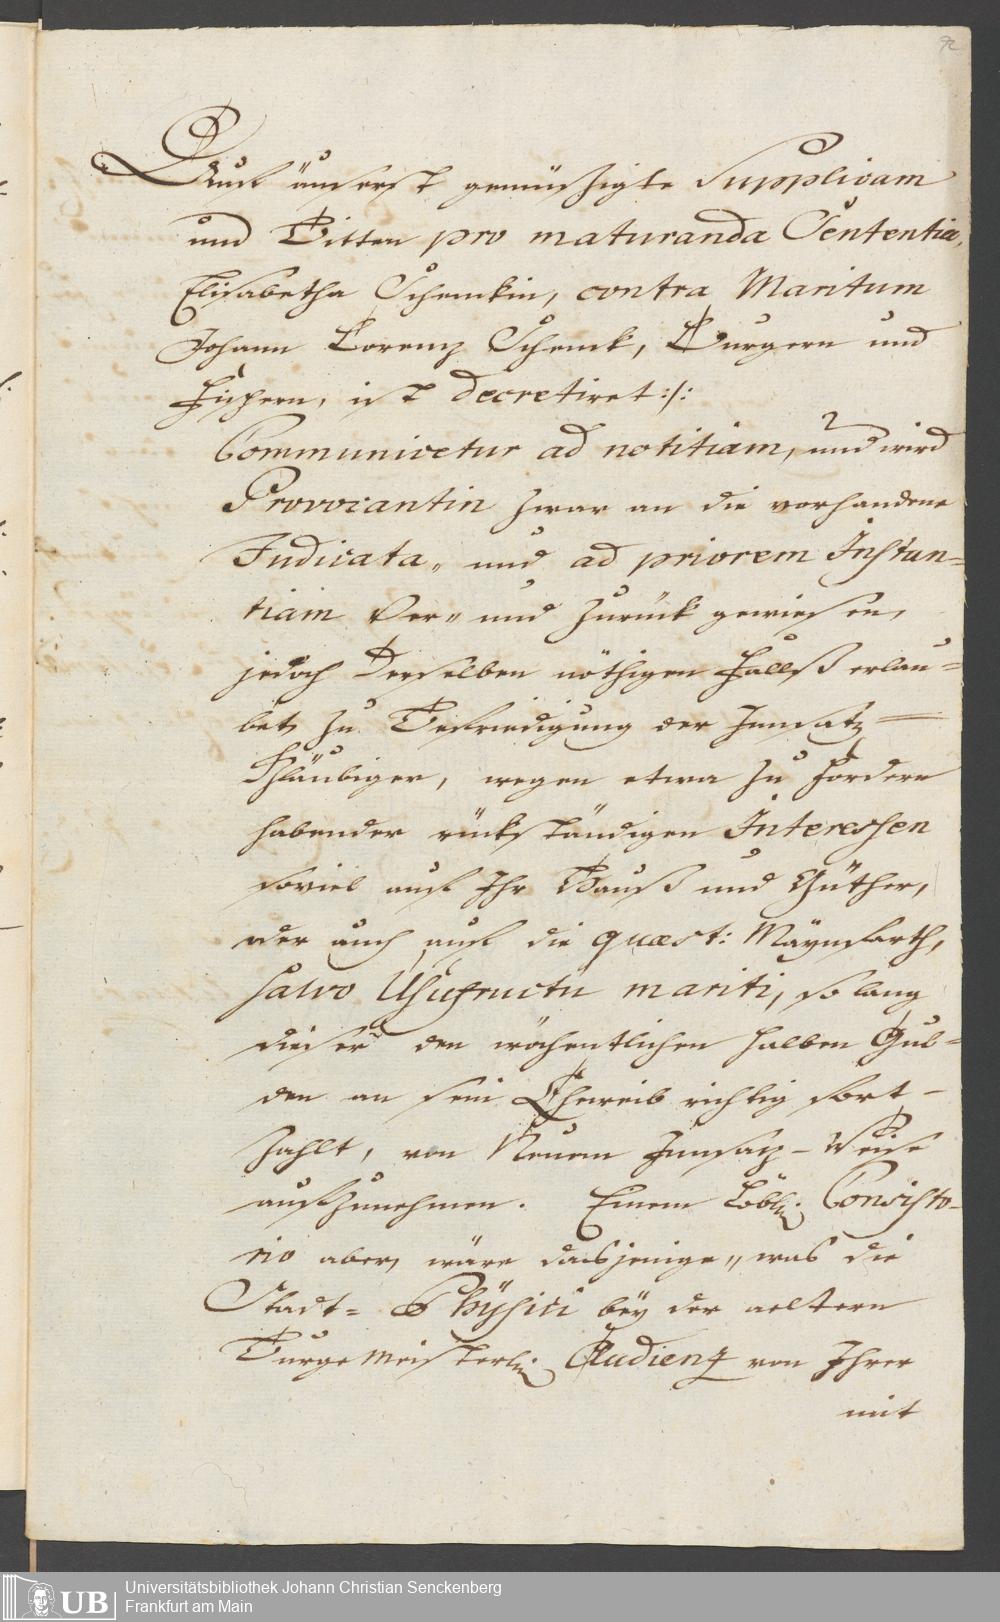 92
Auf äuserst gemüsigte Supplicam
und Bitten pro maturanda Sententia,
Elisabetha Schenckin, contra Maritum
Johann Lorenz Schenck, Burgern und
Fischern, ist decretiret:/:
Communicetur ad notitiam, und wird
Provocantin zwar an die vorhandene
Judicata, und ad priorem Instan=
tiam Ver= und zurück gewiesen,
jedoch Derselben nöthigen Falls erlau=
bet, zu Befriedigung der Innsatz=
Gläubiger, wegen etwa zu fordern
habender rückständigen Interessen
soviel auf Ihr Hauß und Güther,
oder auch auf die quæst: Maynfarth,
salvo Usufructu mariti, so lang
dieser den wöchentlichen halben Gul=
den an sein Eheweib richtig fort-
zahlt, von Neuem Innsatz-Weise
aufzunehmen. Einem Löbl: Consisto-
rio aber, wäre dasjenige, was die
Stadt= Physici bey der aeltern
Burgemeisterl: Audienz von Ihrer
mit
UB
Universitätsbibliothek Johann Christian Senckenberg
Frankfurt am Main